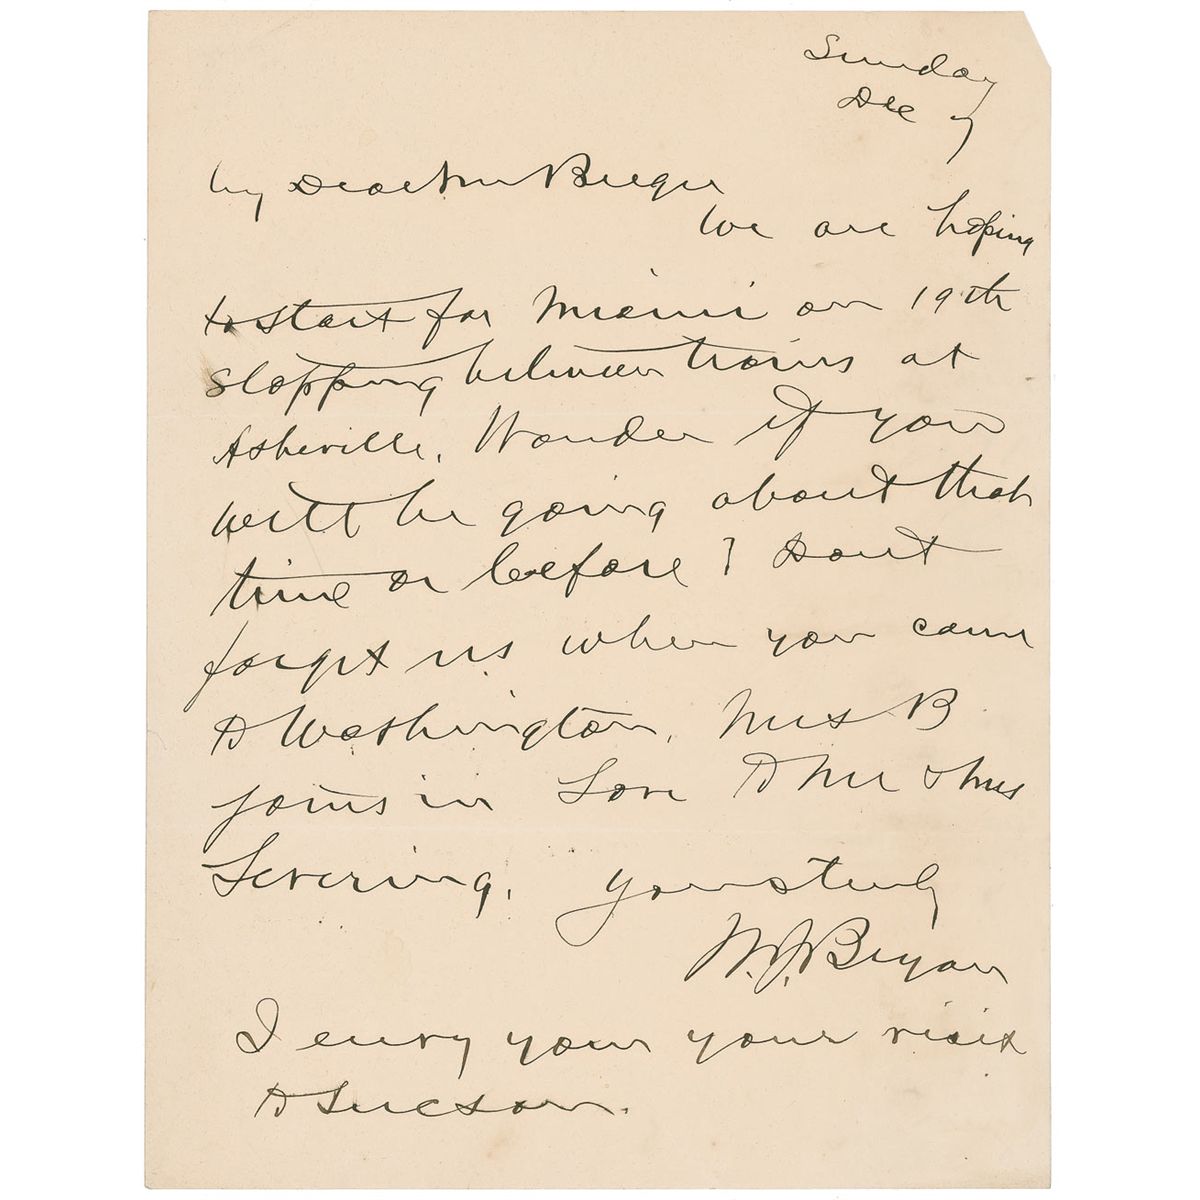 Sunday
Dec 7
My Dear Mr
We are hoping
to start for Miami on 19th
stopping between trains at
Asheville. Wonder if you
will be going about that
time or before? Dont
forget us when you come
to Washington. Mrs B
joins in Love to Mr & Mrs
Levering. Yours truly
W. J. Bryan
I envy you your visit
to Tucson.